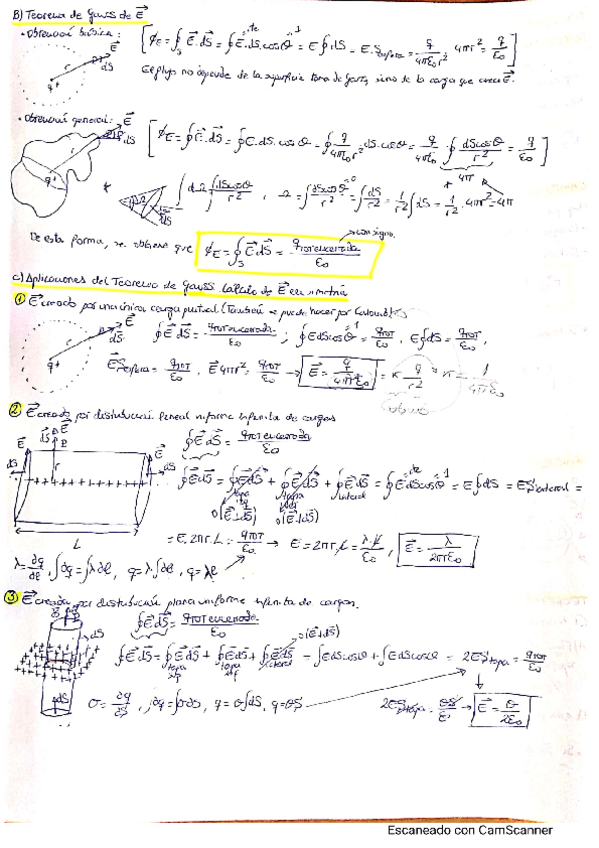 B) Teorema de Gauss de E⃗
• Obtención básica:
[ϕE = ∮S E⃗.dS⃗ = ∮E.dS.cosθ = E∮dS = E.Sesfera = q/4πε₀r² · 4πr² = q/ε₀]
El flujo no depende de la superficie de Gauss, sino de la carga que crea E⃗.
• Obtención general:
[ϕE = ∮E⃗.dS⃗ = ∮E.dS.cosθ = ∮ q/4πε₀r² dS cosθ = q/4πε₀ · ∮ dScosθ/r² = q/ε₀]
4π
∫dΩ ∫dScosθ/r², Ω = ∫dScosθ/r² = ∫dS/r² = 1/r² ∫dS = 1/r² · 4πr² = 4π
De esta forma, se obtiene que ϕE = ∮S E⃗.dS⃗ = qTOT encerrada/ε₀
con signo.
C) Aplicaciones del Teorema de Gauss. Cálculo de E⃗ en simetría
① E⃗ creado por una única carga puntual (También se puede hacer por Coulomb)
∮E⃗dS⃗ = qTOT encerrada/ε₀ ; ∮EdScosθ = qTOT/ε₀, E∮dS = qTOT/ε₀,
E⃗Sesfera = qTOT/ε₀, E⃗4πr² = qTOT/ε₀ → E⃗ = q/4πr²ε₀ = K q/r² K = 1/4πε₀
② E⃗ creado por distribución lineal uniforme infinita de cargas
∮E⃗dS⃗ = qTOT encerrada/ε₀
∮E⃗dS⃗ = ∮E⃗dS⃗ + ∮E⃗dS⃗ + ∮E⃗dS⃗ = ∮E⃗dScosθ = E∮dS = ESlateral =
tapa tapa lateral
0(E⃗⊥dS⃗) 0(E⃗⊥dS⃗)
= E.2πr.L = qTOT/ε₀ → E = 2πr.L = λ.L/ε₀, E⃗ = λ/2πrε₀
L
λ = dq/dℓ, ∫dq = ∫λdℓ, q = λ.∫dℓ, q = λℓ
③ E⃗ creado por distribución plana uniforme infinita de cargas.
∮E⃗dS⃗ = qTOT encerrada/ε₀
0(E⃗⊥dS⃗)
∮E⃗dS⃗ = ∮E⃗dS⃗ + ∮E⃗dS⃗ + ∮E⃗dS⃗ = ∫EdScosθ + ∫EdScosθ = 2EStapa = qTOT/ε₀
tapa tapa lateral
σ = dq/dS, ∫dq = ∫σdS, q = σ∫dS, q = σS
2EStapa = σS/ε₀ → E⃗ = σ/2ε₀
Escaneado con CamScanner